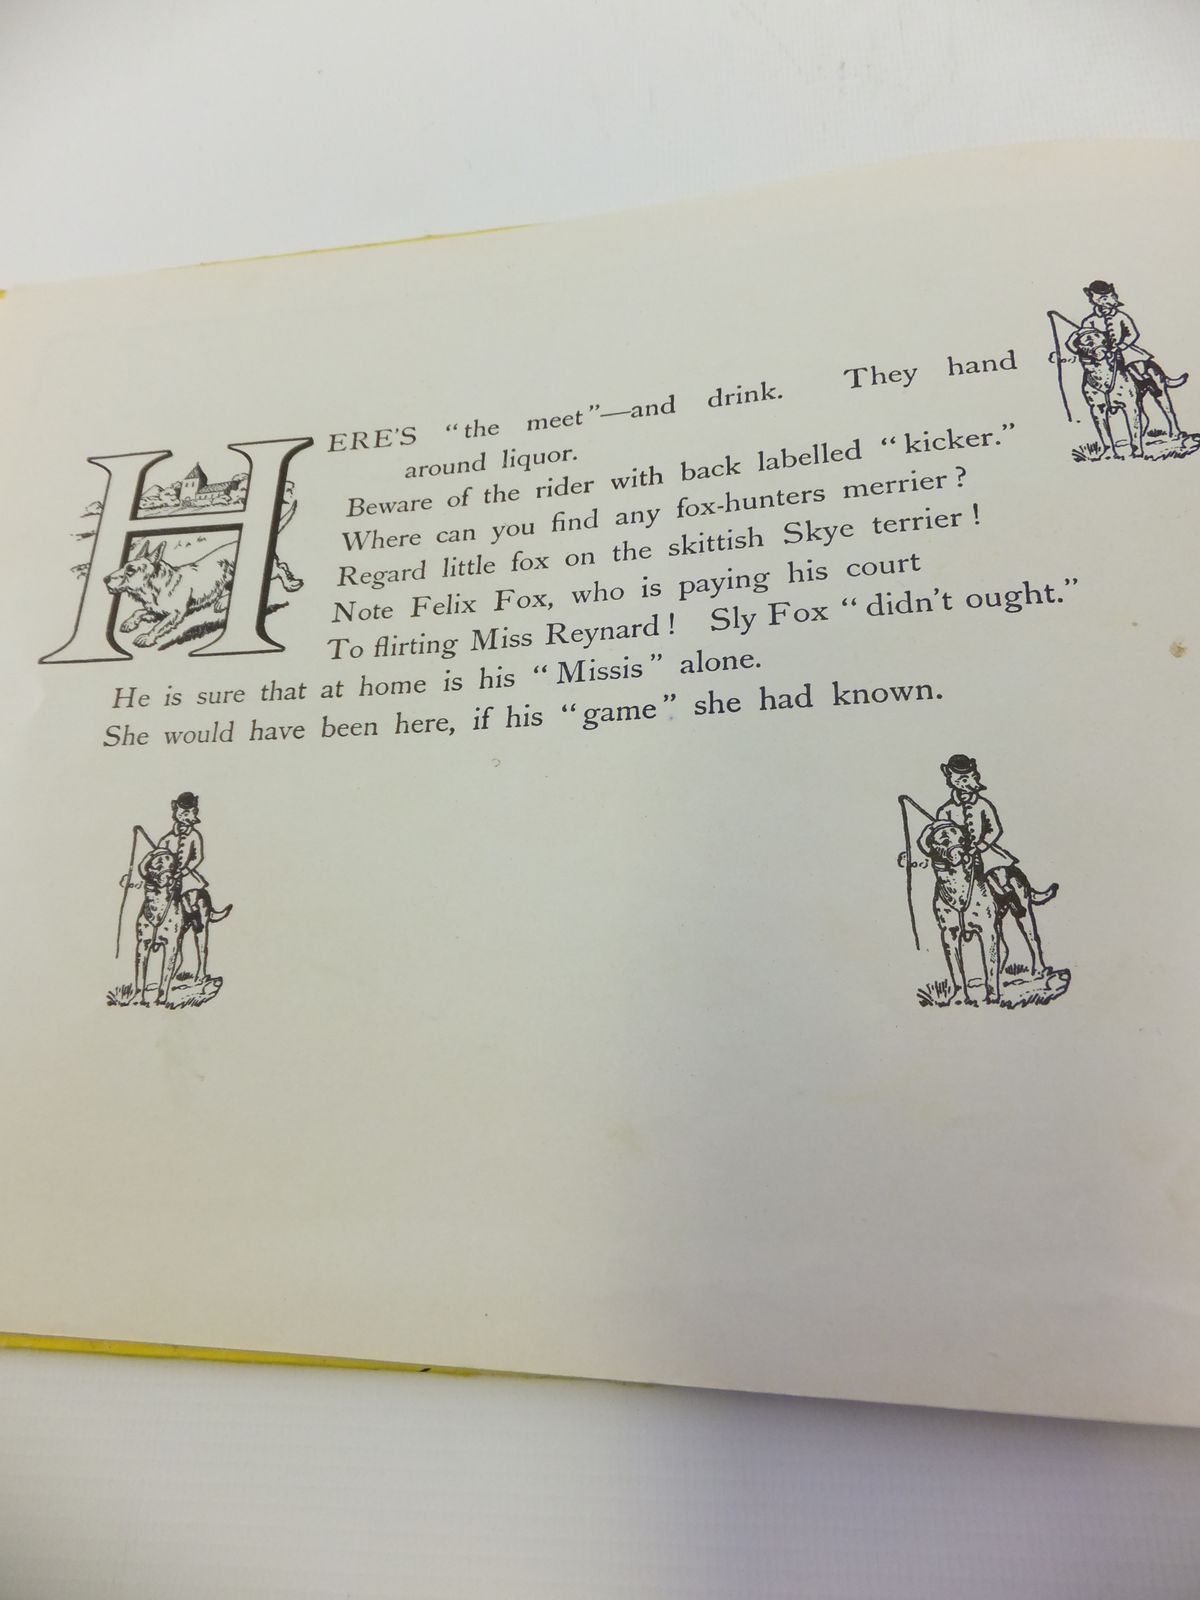 HERE'S "the meet"—and drink. They hand
around liquor.
Beware of the rider with back labelled "kicker."
Where can you find any fox-hunters merrier?
Regard little fox on the skittish Skye terrier!
Note Felix Fox, who is paying his court
To flirting Miss Reynard! Sly Fox "didn't ought."
He is sure that at home is his "Missis" alone.
She would have been here, if his "game" she had known.